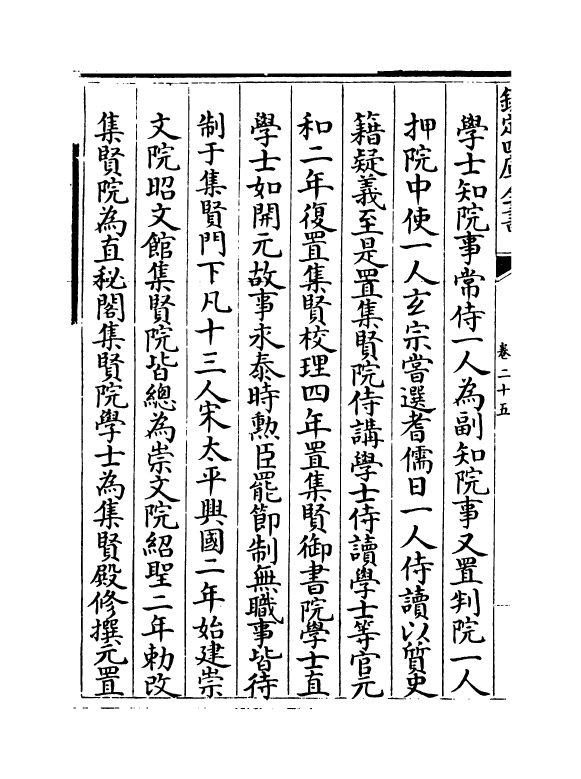 欽定四庫全書
卷二十五
學士知院事常侍一人為副知院事又置判院一人
押院中使一人玄宗嘗選耆儒日一人侍讀以質史
籍疑義至是置集賢院侍講學士侍讀學士等官元
和二年復置集賢校理四年置集賢御書院學士直
學士如開元故事永泰時勲臣罷節制無職事皆待
制于集賢門下凡十三人宋太平興國二年始建崇
文院昭文館集賢院皆總為崇文院紹聖二年勅改
集賢院為直秘閣集賢院學士為集賢殿修撰元置